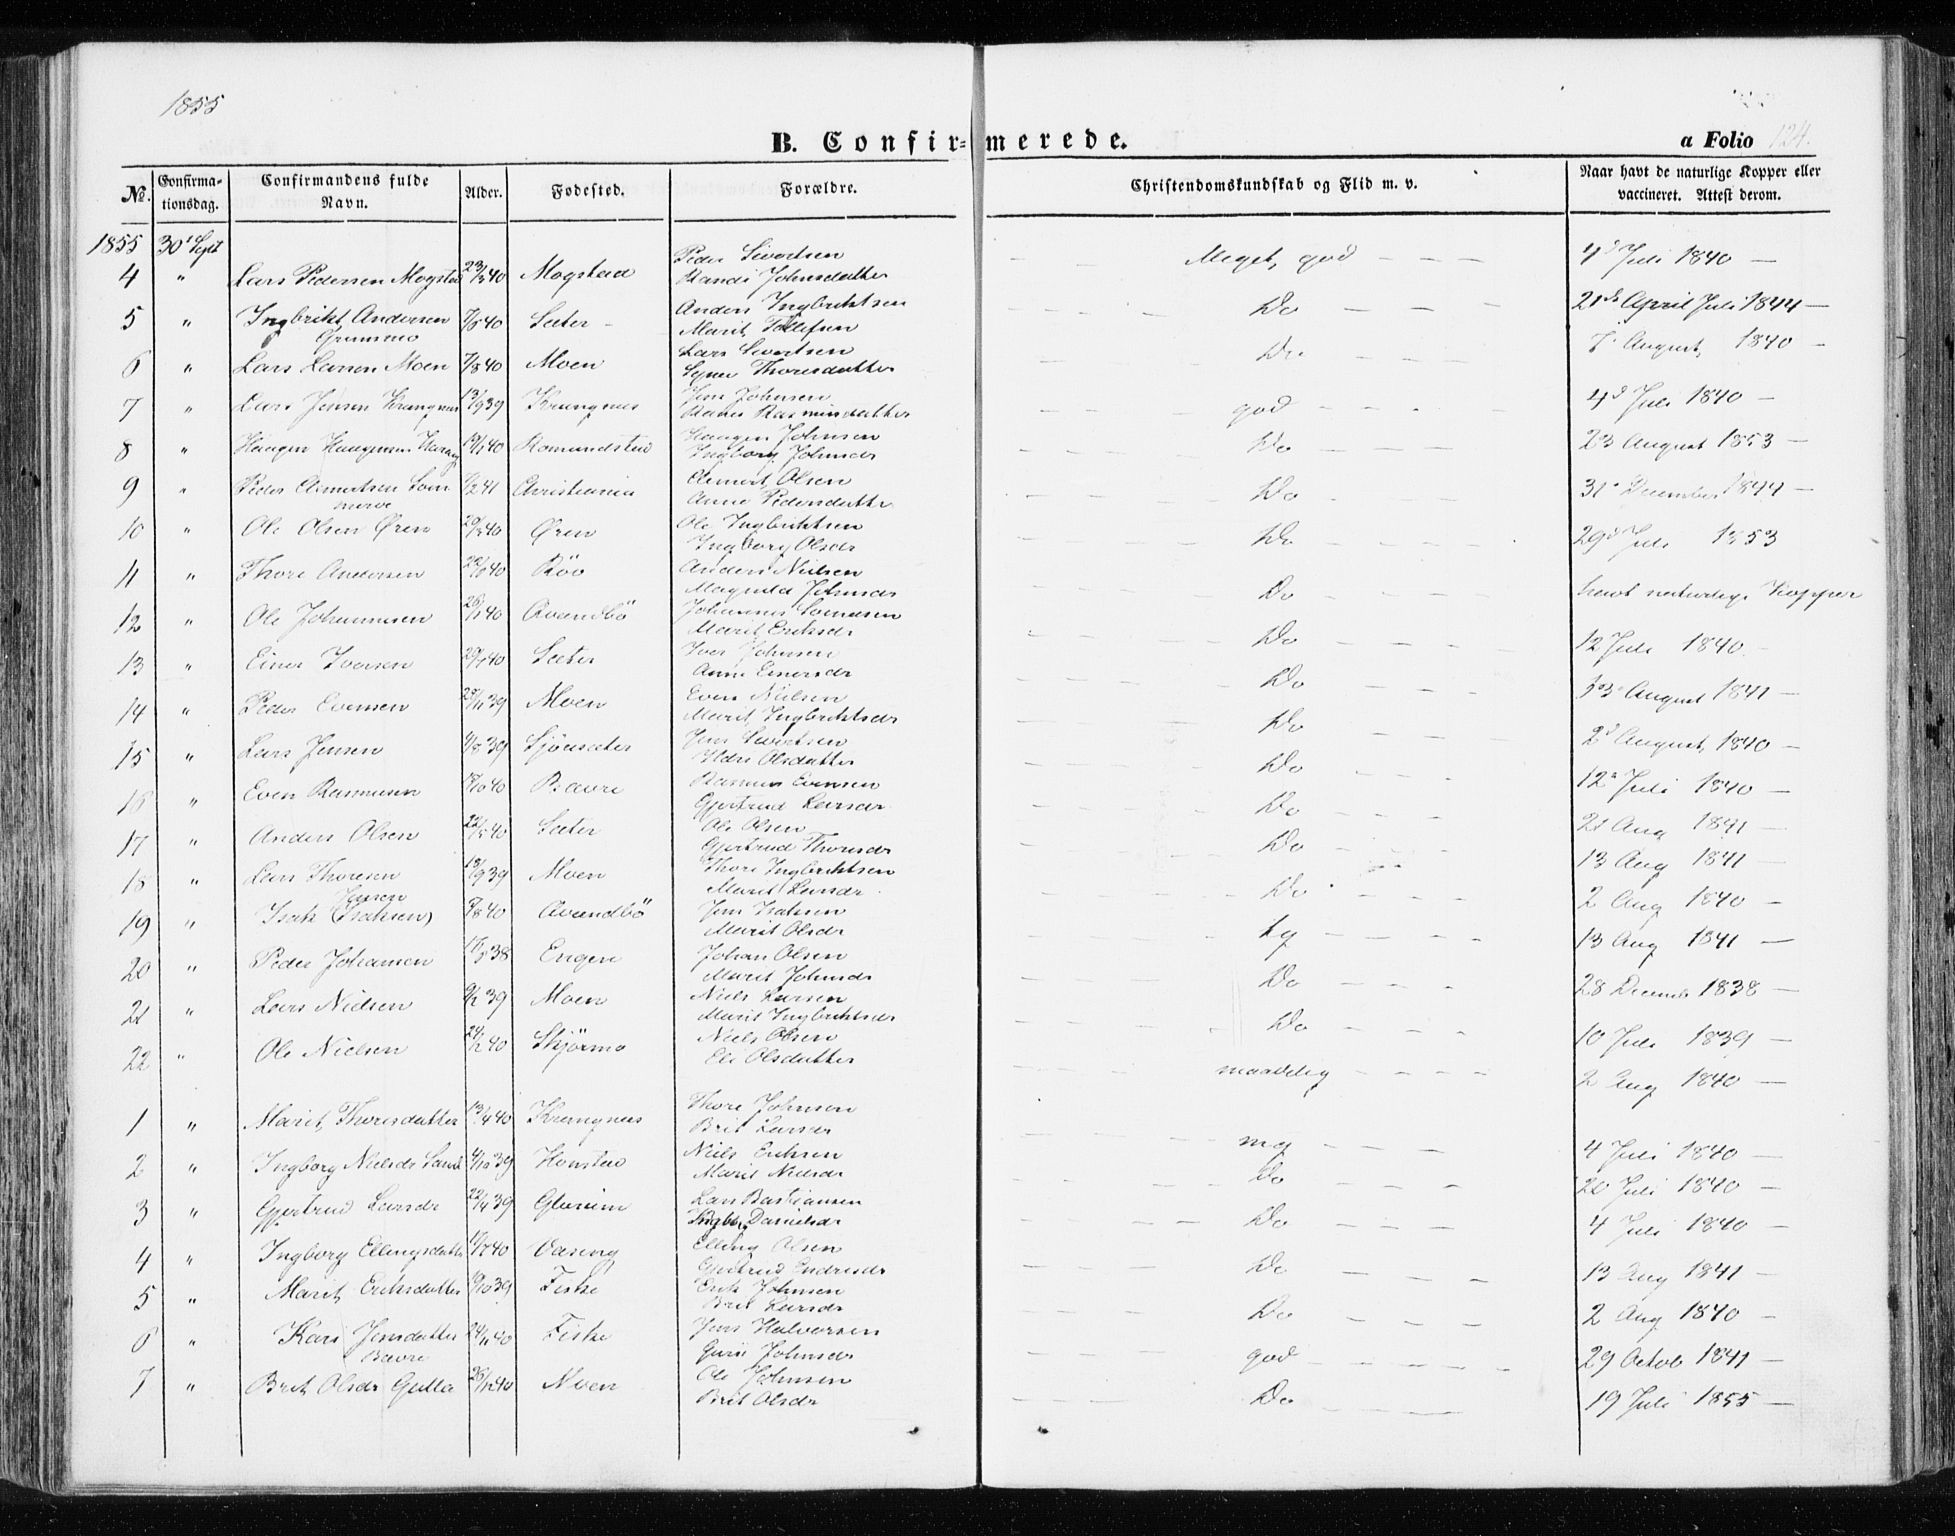 1855
B. Confir=merede.
a Folio 124.
No. Confirmationsdag. Confirmandens fulde Navn. Alder. Fødested. Forældre. Christendomskundskab og Flid m. v. Naar havt de naturlige Kopper eller vaccineret. Attest derom.
1855 30' Sept
4 " Lars Pedersen Mogstad 23/3 40 Mogstad Peder Sivertsen Randi Johnsdatter Meget god 4d Juli 1840 —
5 " Ingbrikt Andersen Grimsmo 7/5 40 Sæter Anders Ingbriktsen Marit Tollefsen Do 21de April Juli 1844 —
6 " Lars Larsen Moen 7/8 40 Moen Lars Sivertsen Thoresdatter Do 7' August 1840 —
7 " Lars Jensen Krangnes 13/9 39 Krangnes Jens Johnsen Rasmusdatter god 4d Juli 1840 —
8 " Haagen Haagensen 40 Romundstad Haagen Johnsen Ingborg Johnsdr Do 23 August 1853 —
9 " Peder 41 Christiania Olsen Anne Pedersdatter Do 31' December 1844 —
10 " Ole Olsen Øren 40 Øren Ole Ingbriktsen Ingborg Olsdr Do 29d Juli 1853
11 " Thore Andersen 40 Böe Anders Nielsen Johnsdr Do havt naturlige Kopper
12 " Ole Johannesen 40 Qvandbö Johannes Marit Eriksdr Do 12 Juli 1840
13 " Einer Iversen 40 Sæter Iver Johnsen Anne Einersdr Do August 1841 —
14 " Peder Evensen 39 Moen Even Nielsen Marit Ingbriktsdr Do 2d August 1840 —
15 " Lars Jensen 4/8 39 Sjöesæter Jens Sivertsen Olsdatter Do 12' Juli 1840 —
16 " Even Rasmusen 40 Bævre Rasmus Evensen Gjertrud Larsdr Do 21 Aug 1841 —
17 " Anders Olsen 22/5 40 Sæter Ole Olsen Gjertrud Thorsdr Do 13 Aug 1841 —
18 " Lars Thoresen 18/9 39 Moen Thore Ingbriktsen Marit Larsdr Do 2 Aug 1840 —
19 " Isak (Isaksen) Jensen 40 Qvandbö Jens Isaksen Marit Olsdr tg 13 Aug 1841 —
20 " Peder Johansen 38 Engen Johan Olsen Marit Johnsdr Do 28 Decemb 1838 —
21 " Lars Nielsen 9/2 39 Moen Niels Larsen Marit Ingbriktsdr Do 10 Juli 1839 —
22 " Ole Nielsen 24/2 40 Skjörmo Niels Olsen Eli Olsdatter maadelig 2 Aug 1840 —
1 " Marit Thoresdatter 13/4 40 Krangnes Thore Johnsen Brit Larsdr mg 4 Juli 1840 —
2 " Ingborg Nielsdr 4/10 39 Honstad Niels Eriksen Marit Nielsdr Do 20 Juli 1840 —
3 " Gjertrud Larsdr 22/4 39 Glærum Lars Bastiansen Ingbor Danielsdr Do 4 Juli 1840 —
4 " Ingborg Ellingsdatter 40 Vaseng Elling Olsen Gjertrud Endresdr Do 13 Aug 1841 —
5 " Marit Eriksdatter 39 Fiske Erik Johnsen Brit Larsdr Do 2 Aug 1840 —
6 " Kari Jensdatter Bævre 24/11 40 Fiske Jens Halvorsen Guri Johnsdr god 29 Octob 1841 —
7 " Brit Olsdr Gulla 40 Moen Ole Johnsen Brit Olsdr Do 19 Juli 1855 —